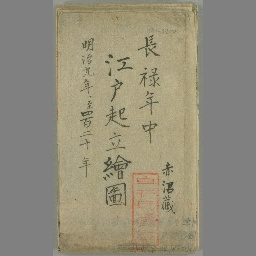 長禄年中
江戸起立繪圖
明治九年ニ至四百二十年
赤沼藏